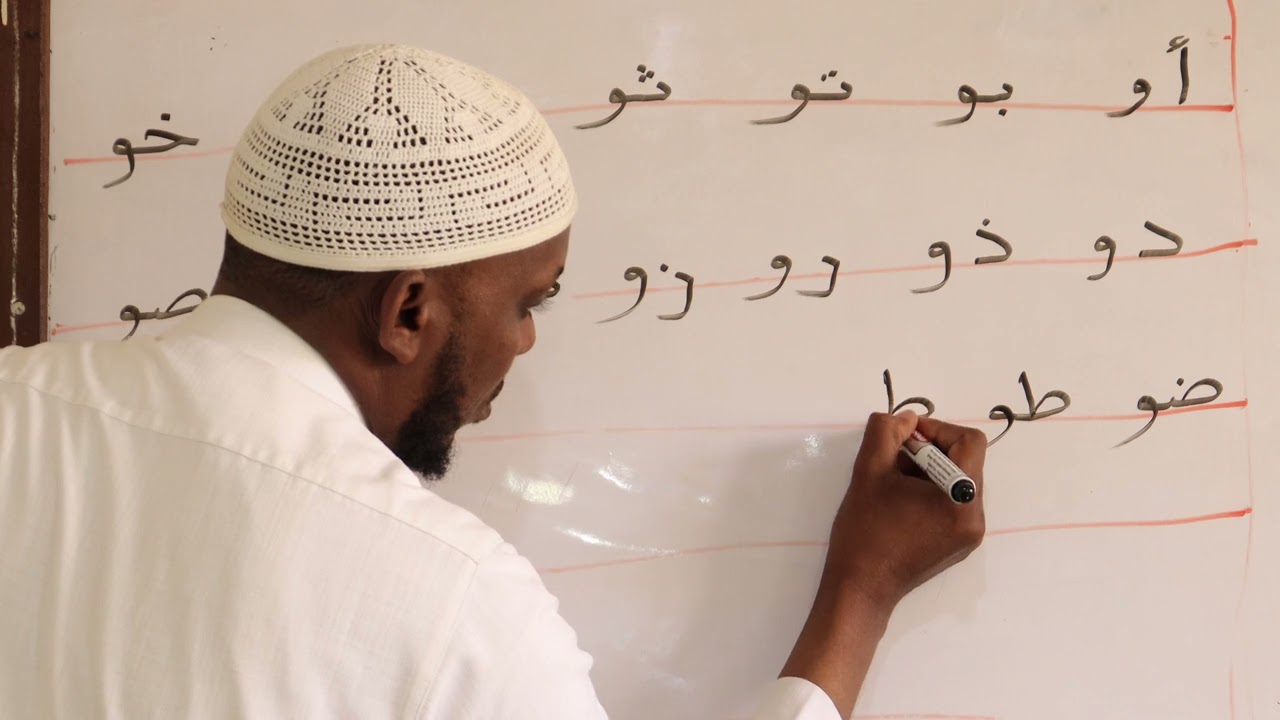 أو بو تو ثو خو
دو ذو رو زو صو
ضو طو ط